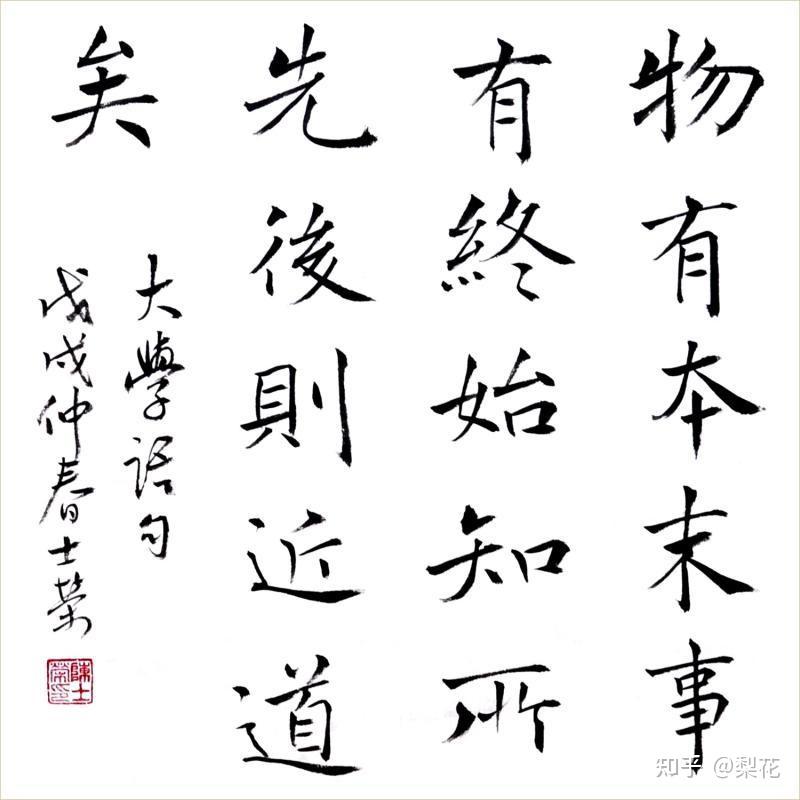 物有本末事
有終始知所
先後則近道
矣
大學語句
戊戌仲春士榮
陳士榮印
知乎 @梨花